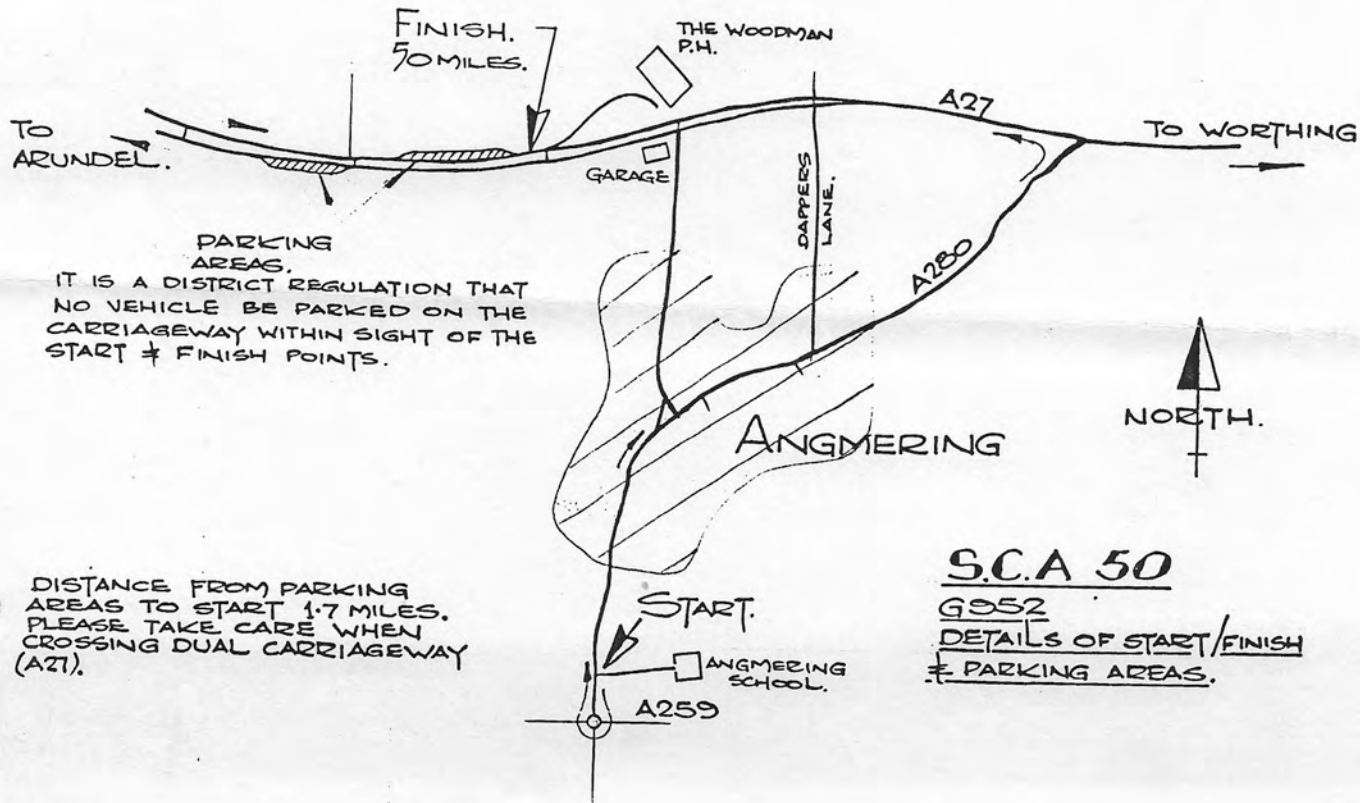 FINISH.
50 MILES.
THE WOODMAN
P.H.
TO
ARUNDEL.
A27
TO WORTHING
GARAGE
DAPPERS
LANE.
A280
PARKING
AREAS.
IT IS A DISTRICT REGULATION THAT
NO VEHICLE BE PARKED ON THE
CARRIAGEWAY WITHIN SIGHT OF THE
START & FINISH POINTS.
NORTH.
ANGMERING
DISTANCE FROM PARKING
AREAS TO START 1.7 MILES.
PLEASE TAKE CARE WHEN
CROSSING DUAL CARRIAGEWAY
(A27).
START.
ANGMERING
SCHOOL.
A259
S.C.A 50
G952
DETAILS OF START/FINISH
& PARKING AREAS.